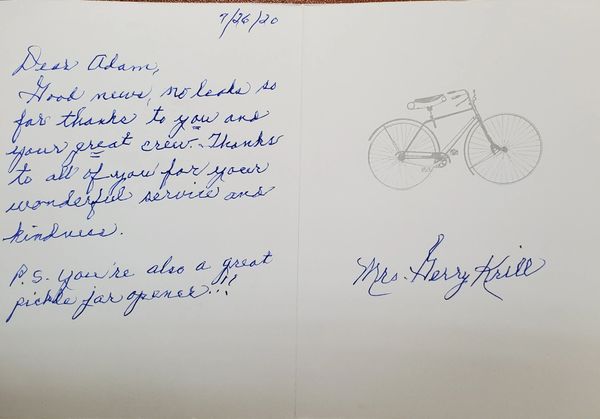 9/26/20
Dear Adam,
Good news, no leaks so
far thanks to you and
your great crew. Thanks
to all of you for your
wonderful service and
kindness.
P.S. You're also a great
pickle jar opener!!!
Mrs. Gerry Krill